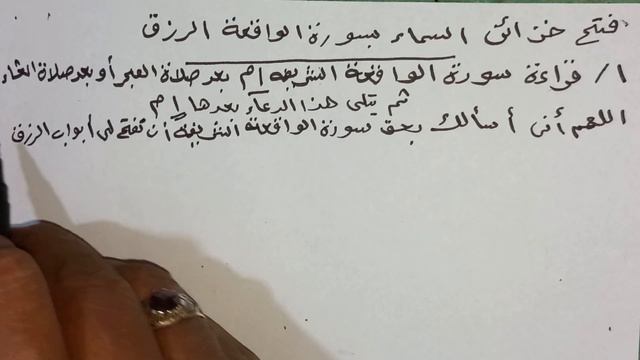 فتح خزائن السماء بسورة الواقعة الرزق
١/ قراءة سورة الواقعة الشريفه ١م بعد صلاة الفجر أو بعد صلاة العشاء
ثم يتلى هذا الدعاء بعدها ١م
اللهم أني أسألك بحق سورة الواقعة الشريفة أن تفتح لي أبواب الرزق